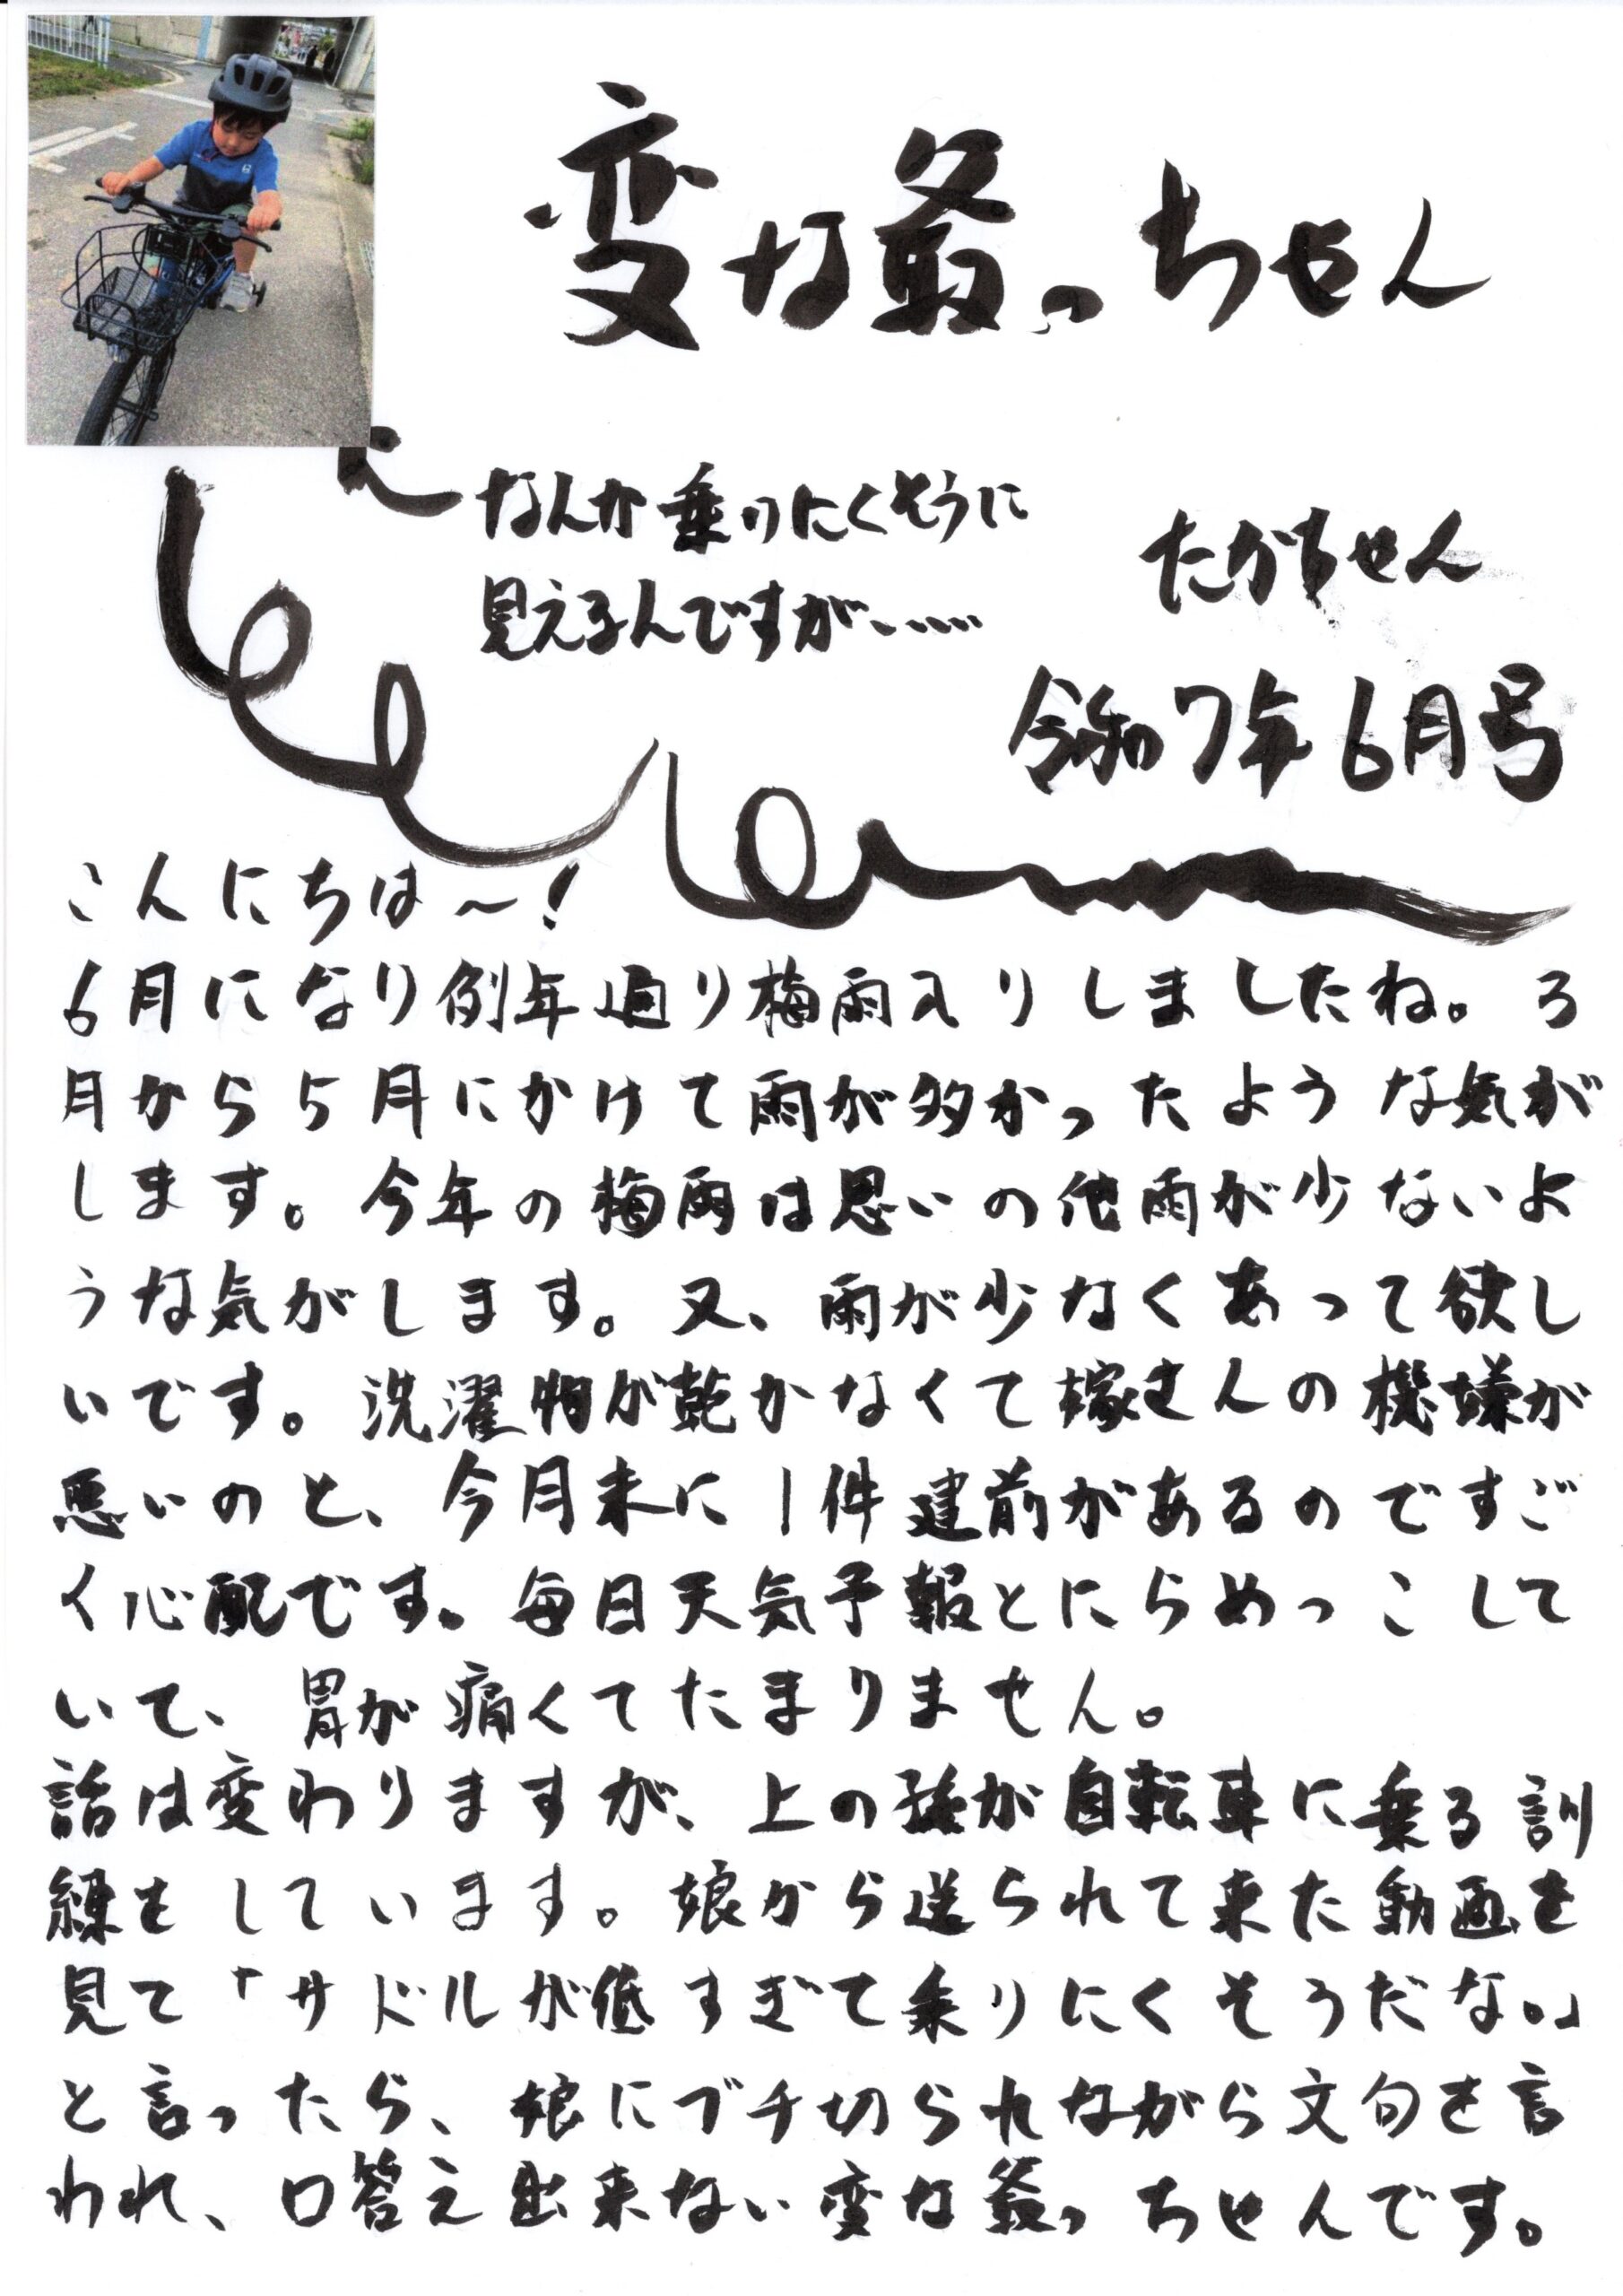 変な爺っちゃん
なんか乗りにくそうに
見えるんですが……
たかちゃん
令和7年6月号
こんにちは～!
6月になり例年通り梅雨入りしましたね。3
月から5月にかけて雨が多かったような気が
します。今年の梅雨は思いの他雨が少ないよ
うな気がします。又、雨が少なくあって欲し
いです。洗濯物が乾かなくて嫁さんの機嫌が
悪いのと、今月末に1件建前があるのですご
く心配です。毎日天気予報とにらめっこして
いて、胃が痛くてたまりません。
話は変わりますが、上の孫が自転車に乗る訓
練をしています。娘から送られて来た動画を
見て「サドルが低すぎて乗りにくそうだな。」
と言ったら、娘にブチ切られながら文句を言
われ、口答え出来ない変な爺っちゃんです。